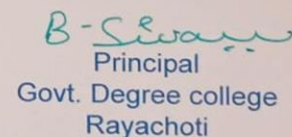 B - Sivaiu
Principal
Govt. Degree college
Rayachoti